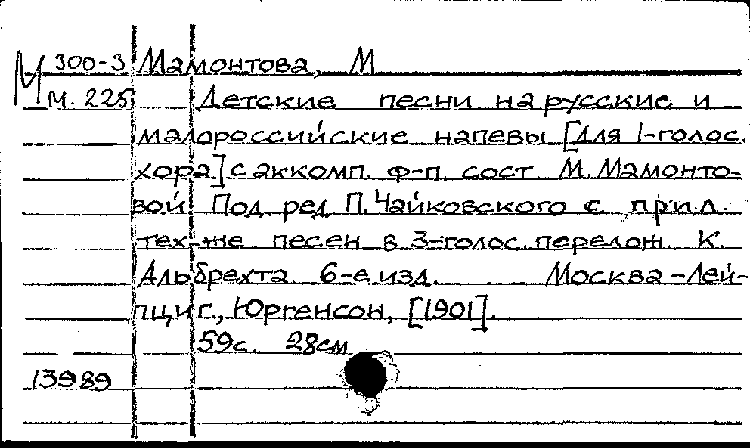 М 300-3 Мамонтова, М
М. 225 Детские песни на русские и
малороссийские напевы [для 1-голос.
хора.] с аккомп. ф-п. сост. М. Мамонто-
вой. Под ред. П. Чайковского с прил.
тех-же песен в 3-голос. перелож. К.
Альбрехта. 6-е изд. Москва-Лей-
пциг., Юргенсон, [1901].
59с. 28см
13989